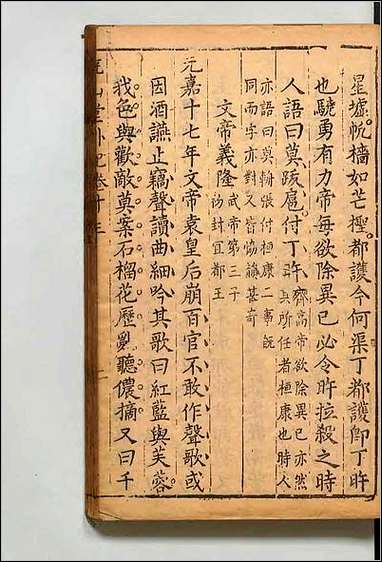 星墟帆檣如芒檉都護今何渠丁都護即丁旿
也驍勇有力帝每欲除異已必令旿拉殺之時
人語曰莫跋扈付丁旿
齊高帝欲除異已亦然
其所任者桓康也時人
亦語曰莫輈張付桓康二事既
同而字亦對又皆協韻甚奇
文帝義隆
武帝第三子
初封宜都王
元嘉十七年文帝袁皇后崩百官不敢作聲歌或
因酒讌止竊聲讀曲細吟其歌曰紅藍與芙蓉
我色與歡敵莫案石榴花歷亂聽儂摘又曰千
堯山堂外紀卷十三
二